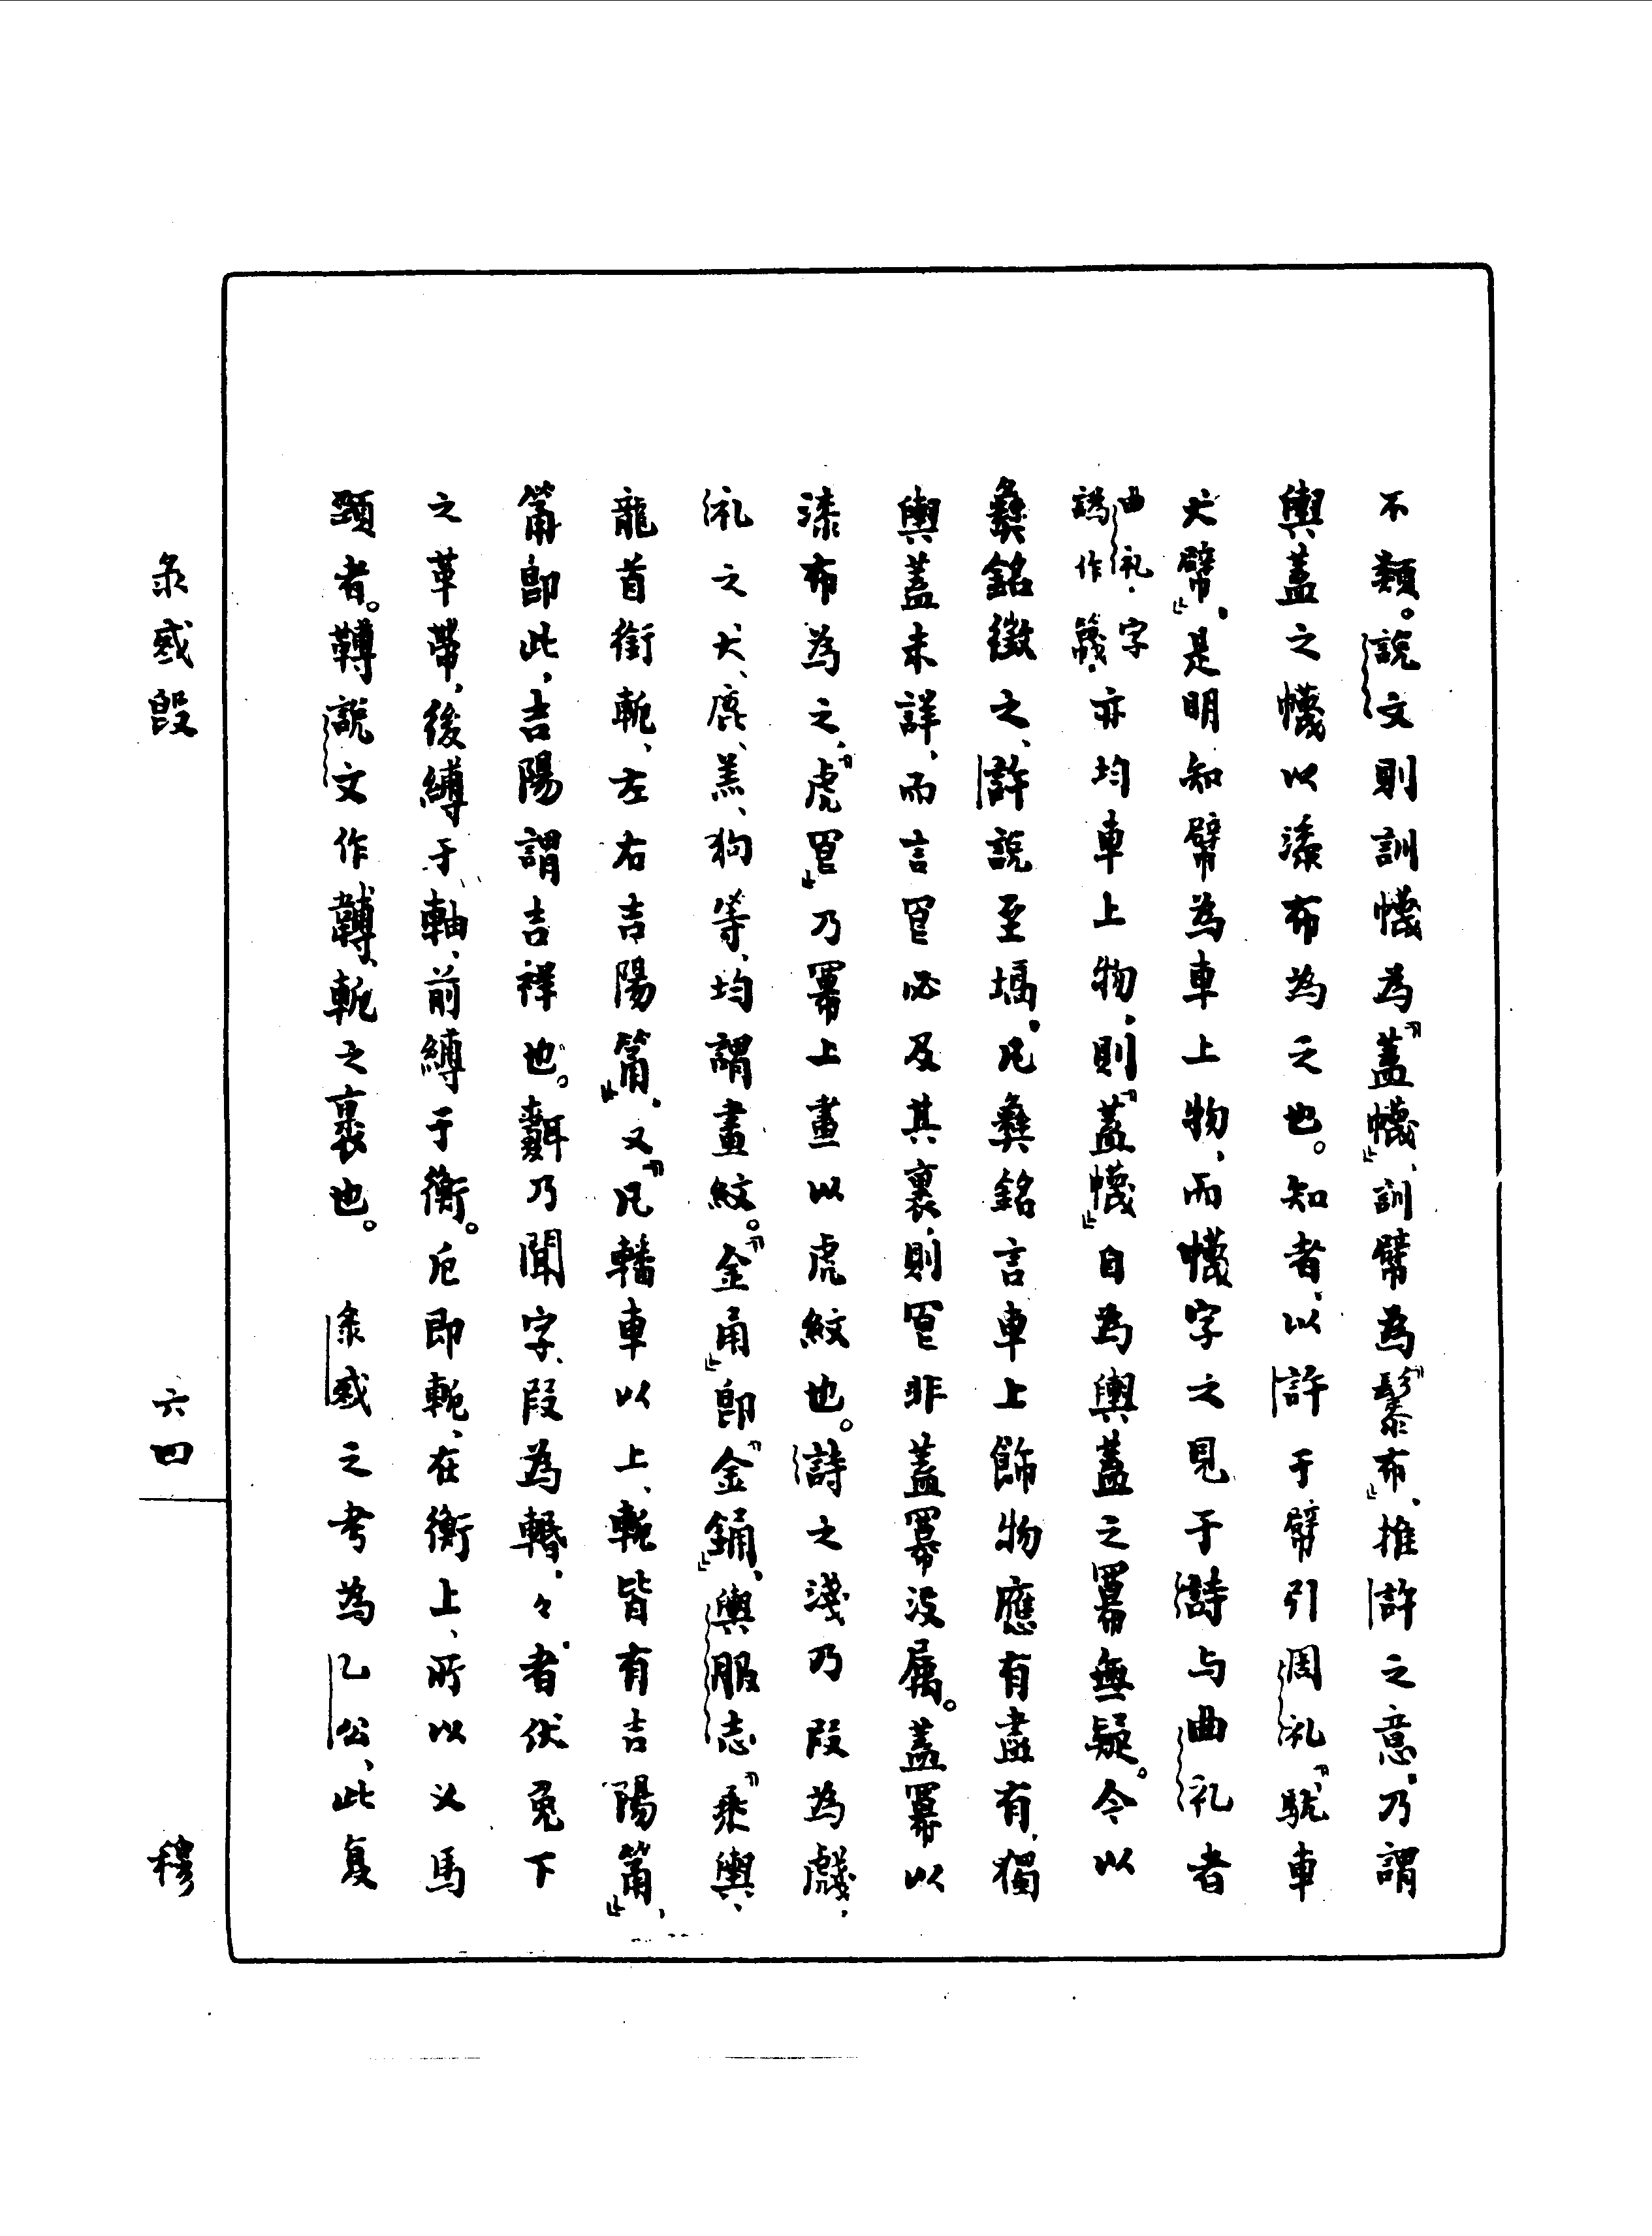 不類。說文則訓幭為『蓋幭』、訓幦為『髹布』，推許之意，乃謂
輿蓋之幭以漆布為之也。知者，以許于幦引周礼『駹車
犬幦』，是明知幦為車上物，而幭字之見于詩与曲礼者
曲礼，字譌作簚，亦均車上物，則『蓋幭』自為輿蓋之冪無疑。今以
彝銘徵之，許說至塙，凡彝銘言車上飾物應有盡有，獨
輿蓋未詳，而言䆷必及其裏，則䆷非蓋冪沒屬。蓋冪以
漆布為之，『虎䆷』乃冪上畫以虎紋也。詩之淺乃叚為虥，
礼之犬、鹿、羔、狗等，均謂畫紋。『金甬』卽『金銿』，輿服志『乘輿、
龍首銜軛、左右吉陽筩』，又『凡轓車以上，軛皆有吉陽筩』，
筩卽此，吉陽謂吉祥也。䎽乃聞字，叚為䡰，々者，伏兔下
之革帶，後縛于軸，前縛于衡。厄即軛，在衡上，所以乂馬
頸者。𩌏說文作䪙，軛之裏也。　彔㦰之考為乙公，此复
彔㦰𣪘
六四
穆